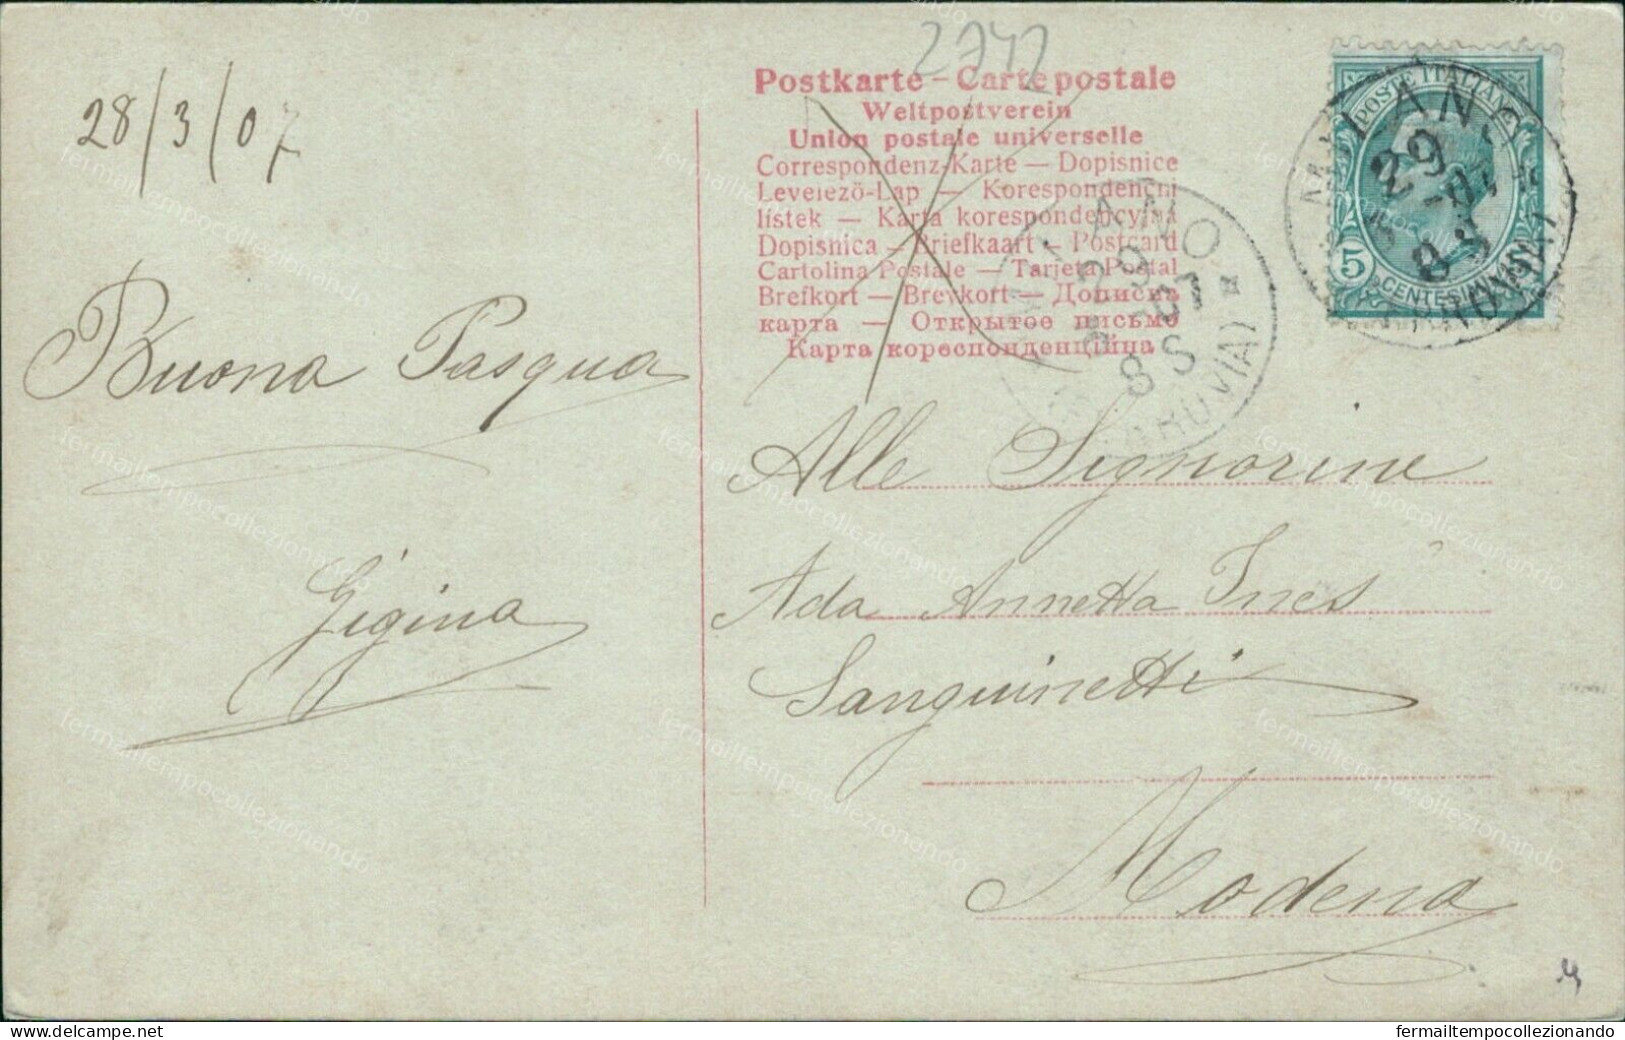 2742
28/3/07
Postkarte – Carte postale
Weltpostverein
Union postale universelle
Correspondenz-Karte — Dopisnice
Levelező-Lap — Korespondenční
lístek — Karta korespondencyjna
Dopisnica — Briefkaart — Postcard
Cartolina Postale — Tarjeta Postal
Brefkort — Brevkort — Дописна
карта — Открытое письмо
Карта кореспонденційна
POSTE ITALIANE
5 CENTESIMI
MILANO
29
8 S
MILANO
29
07
8 S
Buona Pasqua
Gigina
Alle Signorine
Ada Annetta Ines
Sanguinetti
Modena
fermailtempocollezionando
www.delcampe.net
fermailtempocollezionando